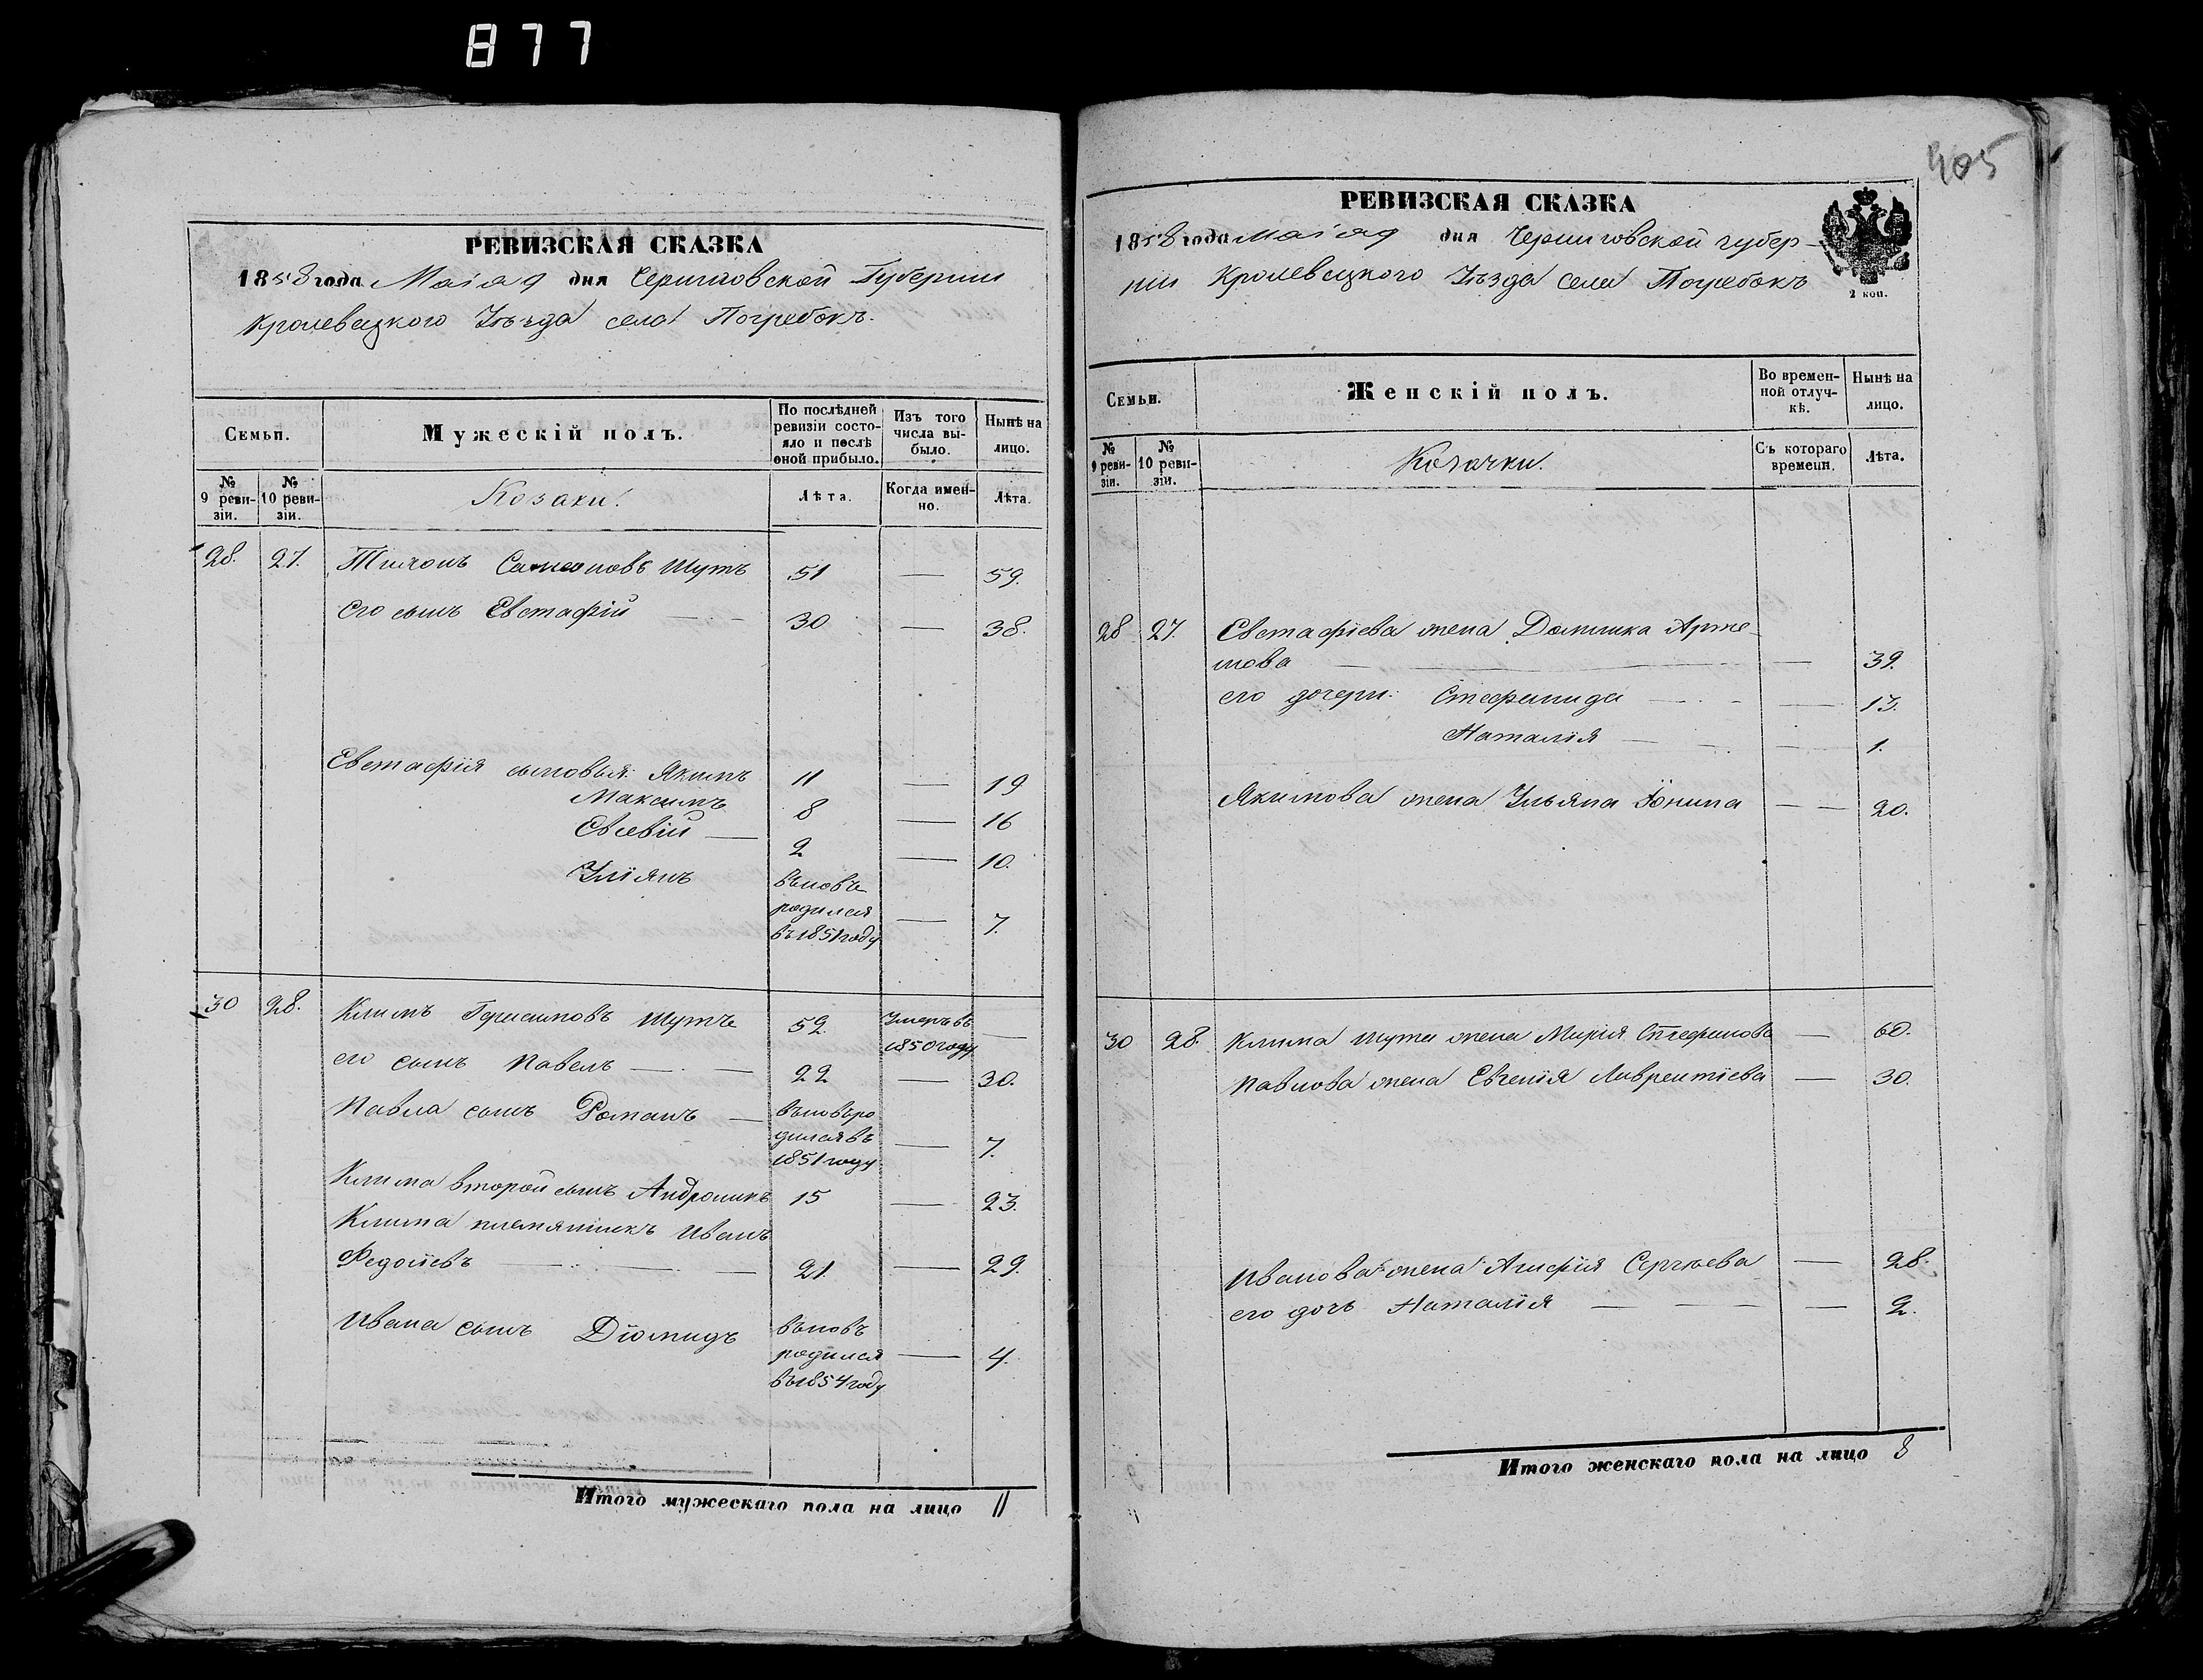 877
405
РЕВИЗСКАЯ СКАЗКА
1858 года Маія 9 дня Черниговской Губерніи
Кролевецкого Уѣзда села Погребокъ.
Семьи.
Мужескій полъ.
По послѣдней ревизіи состояло и послѣ оной прибыло.
Изъ того числа выбыло.
Нынѣ на лицо.
№ 9 ревизіи.
№ 10 ревизіи.
Козаки.
Лѣта.
Когда именно.
Лѣта.
28. 27. Тихонъ Самсоновъ Шутъ 51 — 59.
Его сынъ Евстафій — 30 — 38.
Евстафія сыновья: Якимъ 11 — 19
Максимъ 8 — 16
Евсевій — 2 — 10.
Уліянъ вьновь
родился — 7.
въ 1851 году
30 28. Климъ Герасимовъ Шутъ 52. Умеръ въ —
1850 году
его сынъ Павелъ — 22 — 30.
Павла сынъ Романъ — вьновь ро
дился въ — 7.
1851 году
Клима второй сынъ Андроникъ 15 — 23.
Клима племянникъ Иванъ
Федосіевъ — 21. — 29.
Ивана сынъ Діомидъ вьновь
родился — 4.
въ 1854 году
Итого мужескаго пола на лицо 11
РЕВИЗСКАЯ СКАЗКА
1858 года Маія 9 дня Черниговской губер-
ніи Кролевецкого Уѣзда села Погребокъ
2 коп.
Семьи.
Женскій полъ.
Во временной отлучкѣ.
Нынѣ на лицо.
№ 9 ревизіи.
№ 10 ревизіи.
Козачки.
Съ котораго времени.
Лѣта.
28 27. Евстафіева жена Домника Арте-
мова — — 39.
его дочери: Стефанида — — 13.
Наталія — — 1.
Якимова жена Ульяна Іонина — 20.
30 28. Клима Шута жена Марія Стефанова — 60.
Павлова жена Евгенія Лаврентіева — 30.
Иванова жена Агафія Сергѣева — 28.
его дочь Наталія — — 2.
Итого женскаго пола на лицо 8